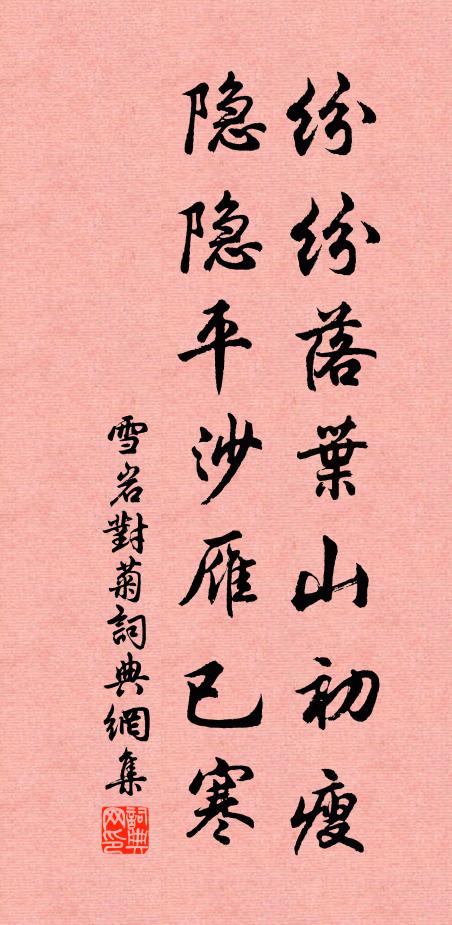 纷纷落葉山初瘦
隐隐平沙雁已寒
雪岩對菊詞典網集
詞典网印